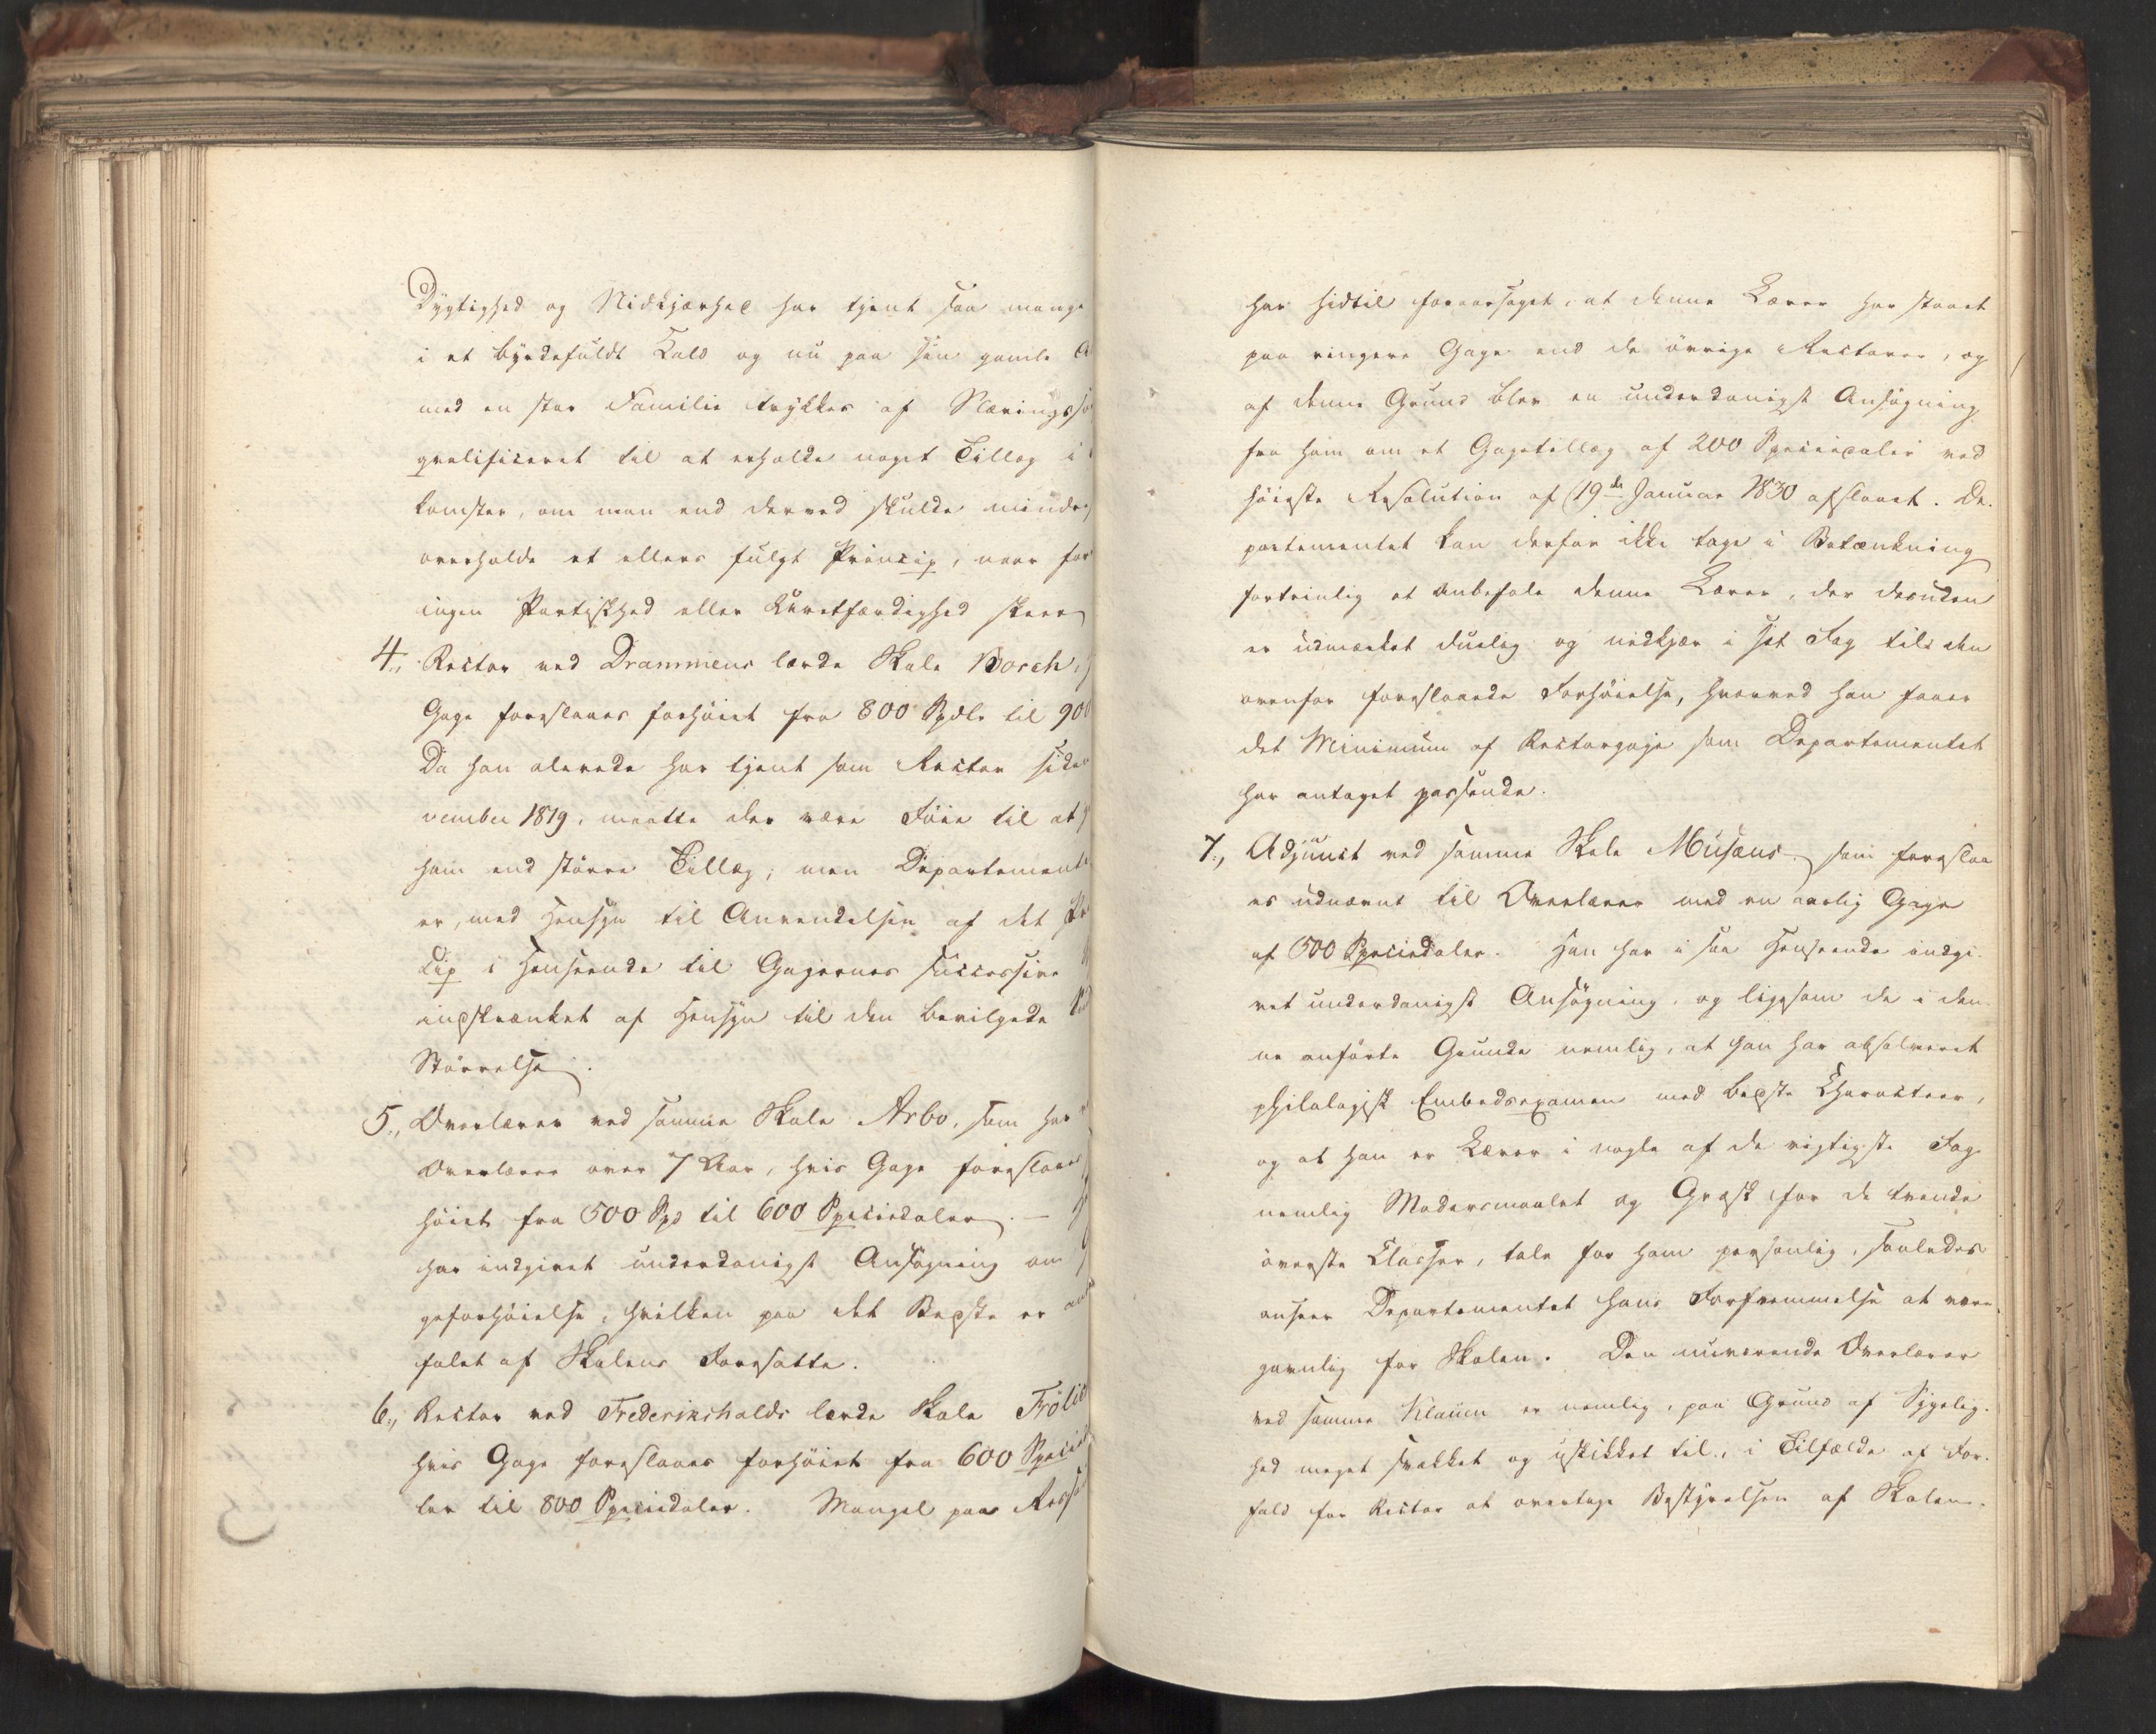 Dygtighed og Nidkjærhed har tjent saa mange
i et byrdefuldt Kald og nu paa sin gamle A
med en stor Familie trykkes af Nærings
qvalificeret til at erholde noget Tillæg i
komster, om man end derved skulde mindre
overholde et ellers fulgt Princip, naar for
ingen Partiskhed eller Uretfærdighed skeer
4., Rector ved Drammens lærde Skole Borch,
Gage foreslaaes forhöiet fra 800 Spdlr til 900
Da han alerede har tjent som Rector siden
vember 1819, maatte der være Föie til at
ham end större Tillæg; men Departemente
er, med Hensyn til Anvendelsen af det Pr
cip i Henseende til Gagernes successive
indskrænket af Hensyn til den bevilgede
Störrelse.
5., Overlærer ved samme Skole Arbo, som har
Overlærer over 7 Aar, hvis Gage foreslaaes
höiet fra 500 Spd til 600 Speciedaler. —
har indgivet underdanigst Ansögning om
geforhöielse, hvilken paa det Bedste er an
falet af Skolens Foresatte.
6., Rector ved Frederikshalds lærde Skole Frölic
hvis Gage foreslaaes forhöiet fra 600 Specied
ler til 800 Speciedaler. Mangel paa Resso
har hidtil foraarsaget, at denne Lærer har staaet
paa ringere Gage end de övrige Rectorer, og
af denne Grund blev en underdanigst Ansögning
fra ham om et Gagetillæg af 200 Speciedaler ved
höieste Resolution af 19de Januar 1830 afslaaet. De-
partementet kan derfor ikke tage i Betænkning
fortrinlig at anbefale denne Lærer, der desuden
er udmærket duelig og nidkjær i sit Fag til den
ovenfor foreslaaede Forhöielse, hvorved han faaer
det Minimum af Rectorgage som Departementet
har antaget passende.
7., Adjunct ved samme Skole Musæus, som foreslaa
es udnævnt til Overlærer med en aarlig Gage
af 500 Speciedaler. Han har i saa Henseende indgi-
vet underdanigst Ansögning, og ligesom de i den-
ne anförte Grunde nemlig, at han har absolveret
philologisk Embedsexamen med bedste Charakteer,
og at han er Lærer i nogle af de vigtigste Fag
nemlig Modersmaalet og Græsk for de tvende
överste Classer, tale for ham personlig, saaledes
anseer Departementet hans Forfremmelse at være
gavnlig for Skolen. Den nuværende Overlærer
ved samme Klauen er nemlig, paa Grund af Sygelig-
hed meget svækket og uskikket til, i Tilfælde af For-
fald for Rector at overtage Bestyrelsen af Skolen.